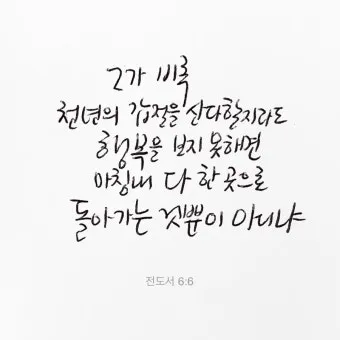 그가 비록
천년의 갑절을 산다할지라도
행복을 보지 못하면
마침내 다 한 곳으로
돌아가는 것뿐이 아니냐
전도서 6:6